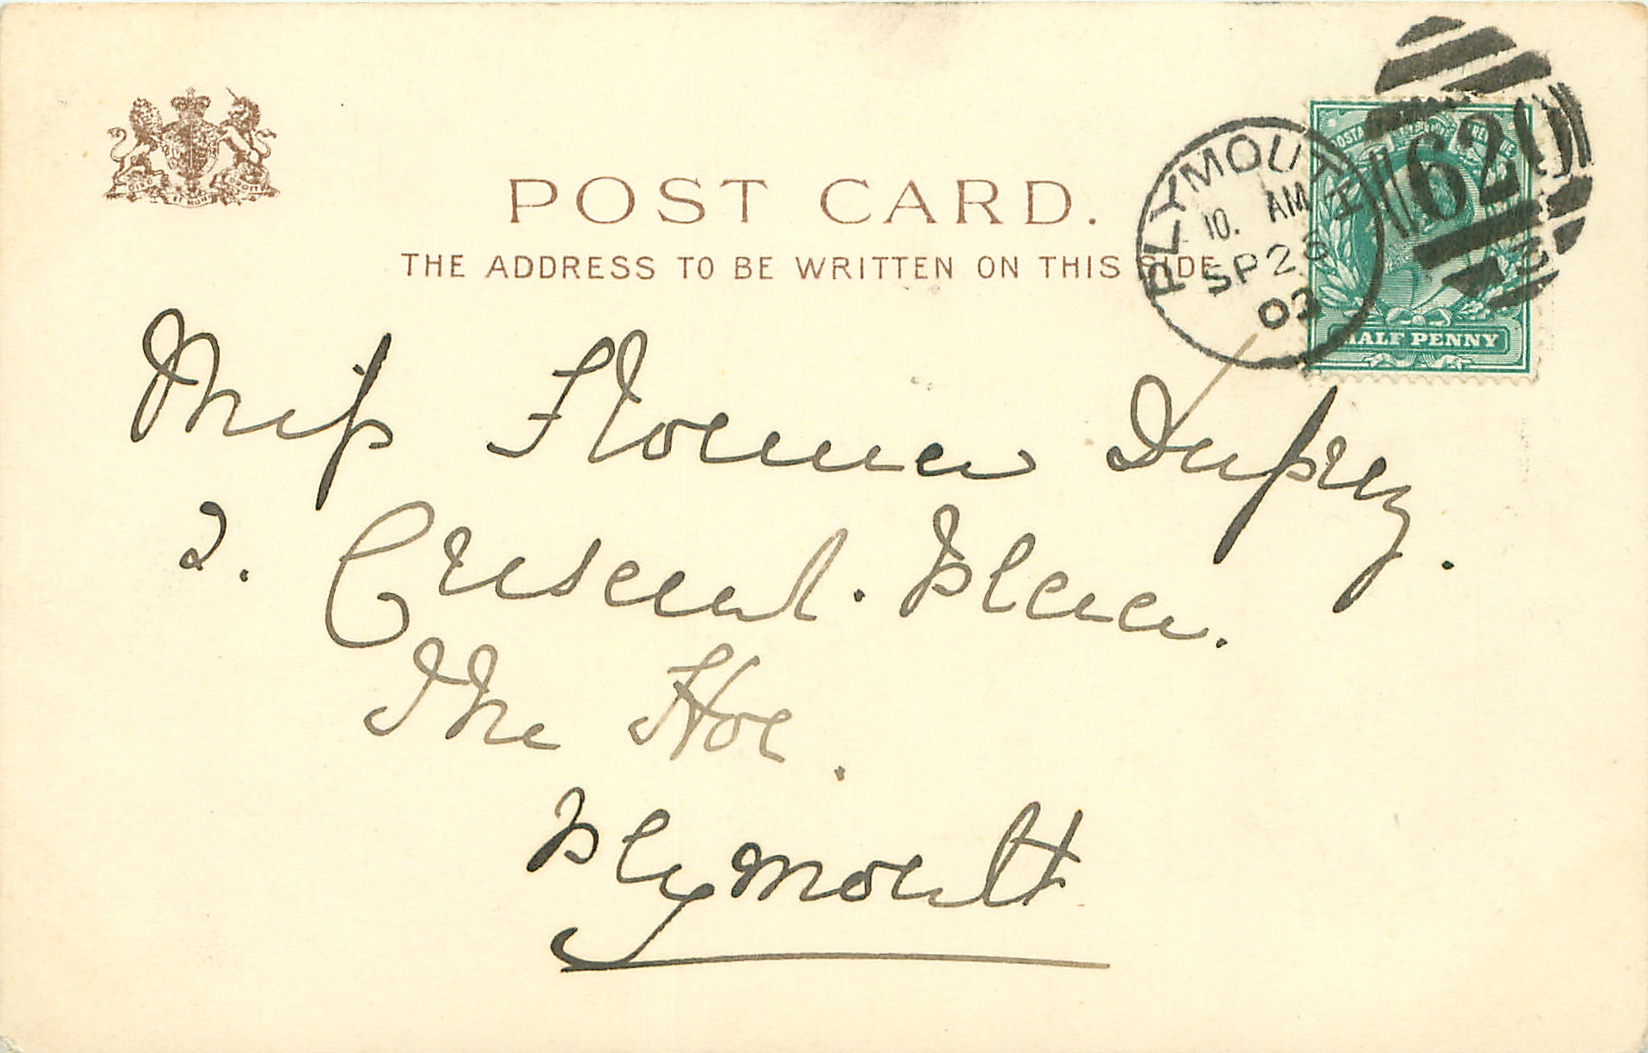 POST CARD.
THE ADDRESS TO BE WRITTEN ON THIS SIDE
PLYMOUTH
10. AM
SP 25
03
620
HALF PENNY
Miss Florence Duprey.
2. Crescent. Place.
The Hoe.
Plymouth